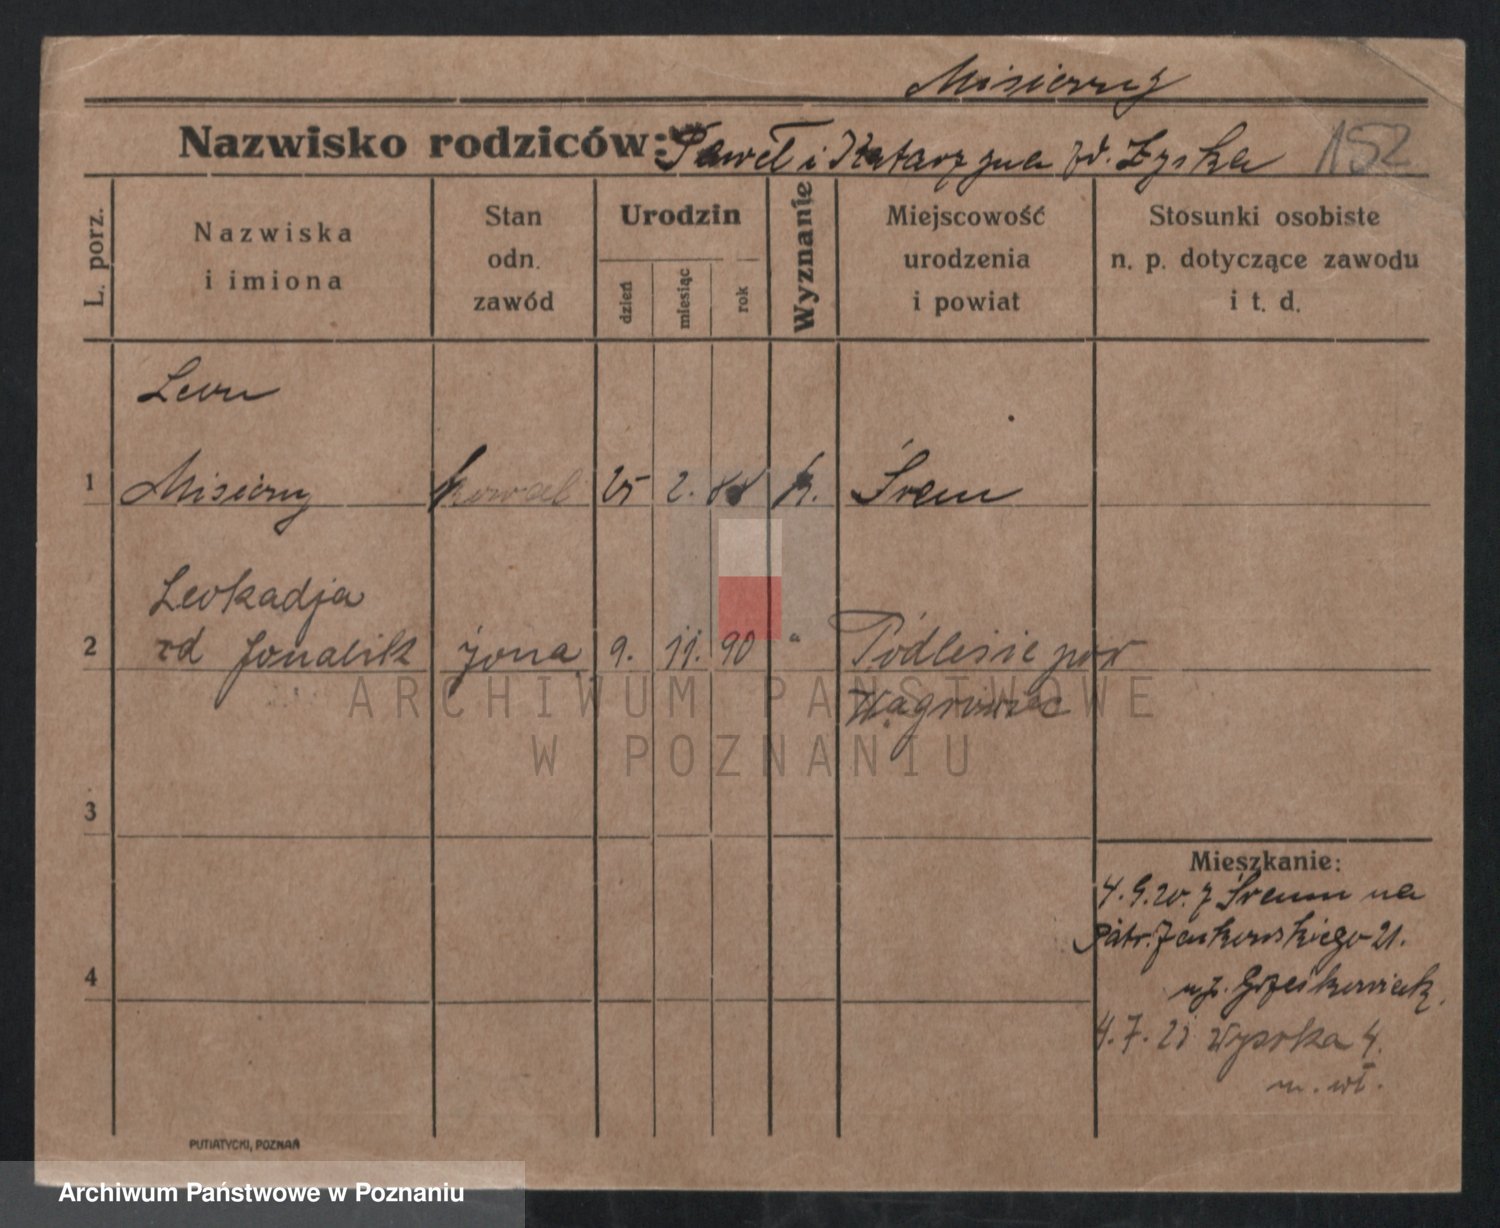 Misierny
Nazwisko rodziców: Paweł i Katarzyna zd. Łyska 152
L. porz.
Nazwiska
i imiona
Stan
odn.
zawód
Urodzin
dzień
miesiąc
rok
Wyznanie
Miejscowość
urodzenia
i powiat
Stosunki osobiste
n. p. dotyczące zawodu
i t. d.
Leon
1 Misierny kowal 25 2. 88 k. Śrem
Leokadja
2 zd żona 9. 11. 90 " Podlesie pow
Wągrowiec
3
Mieszkanie:
4.9.20. z Śremu na
Patr. Jackowskiego 21.
4 u p. Grześkowiak.
4.7.21 Wysoka 4.
m. wł.
PUTIATYCKI, POZNAŃ
ARCHIWUM PAŃSTWOWE
W POZNANIU
Archiwum Państwowe w Poznaniu